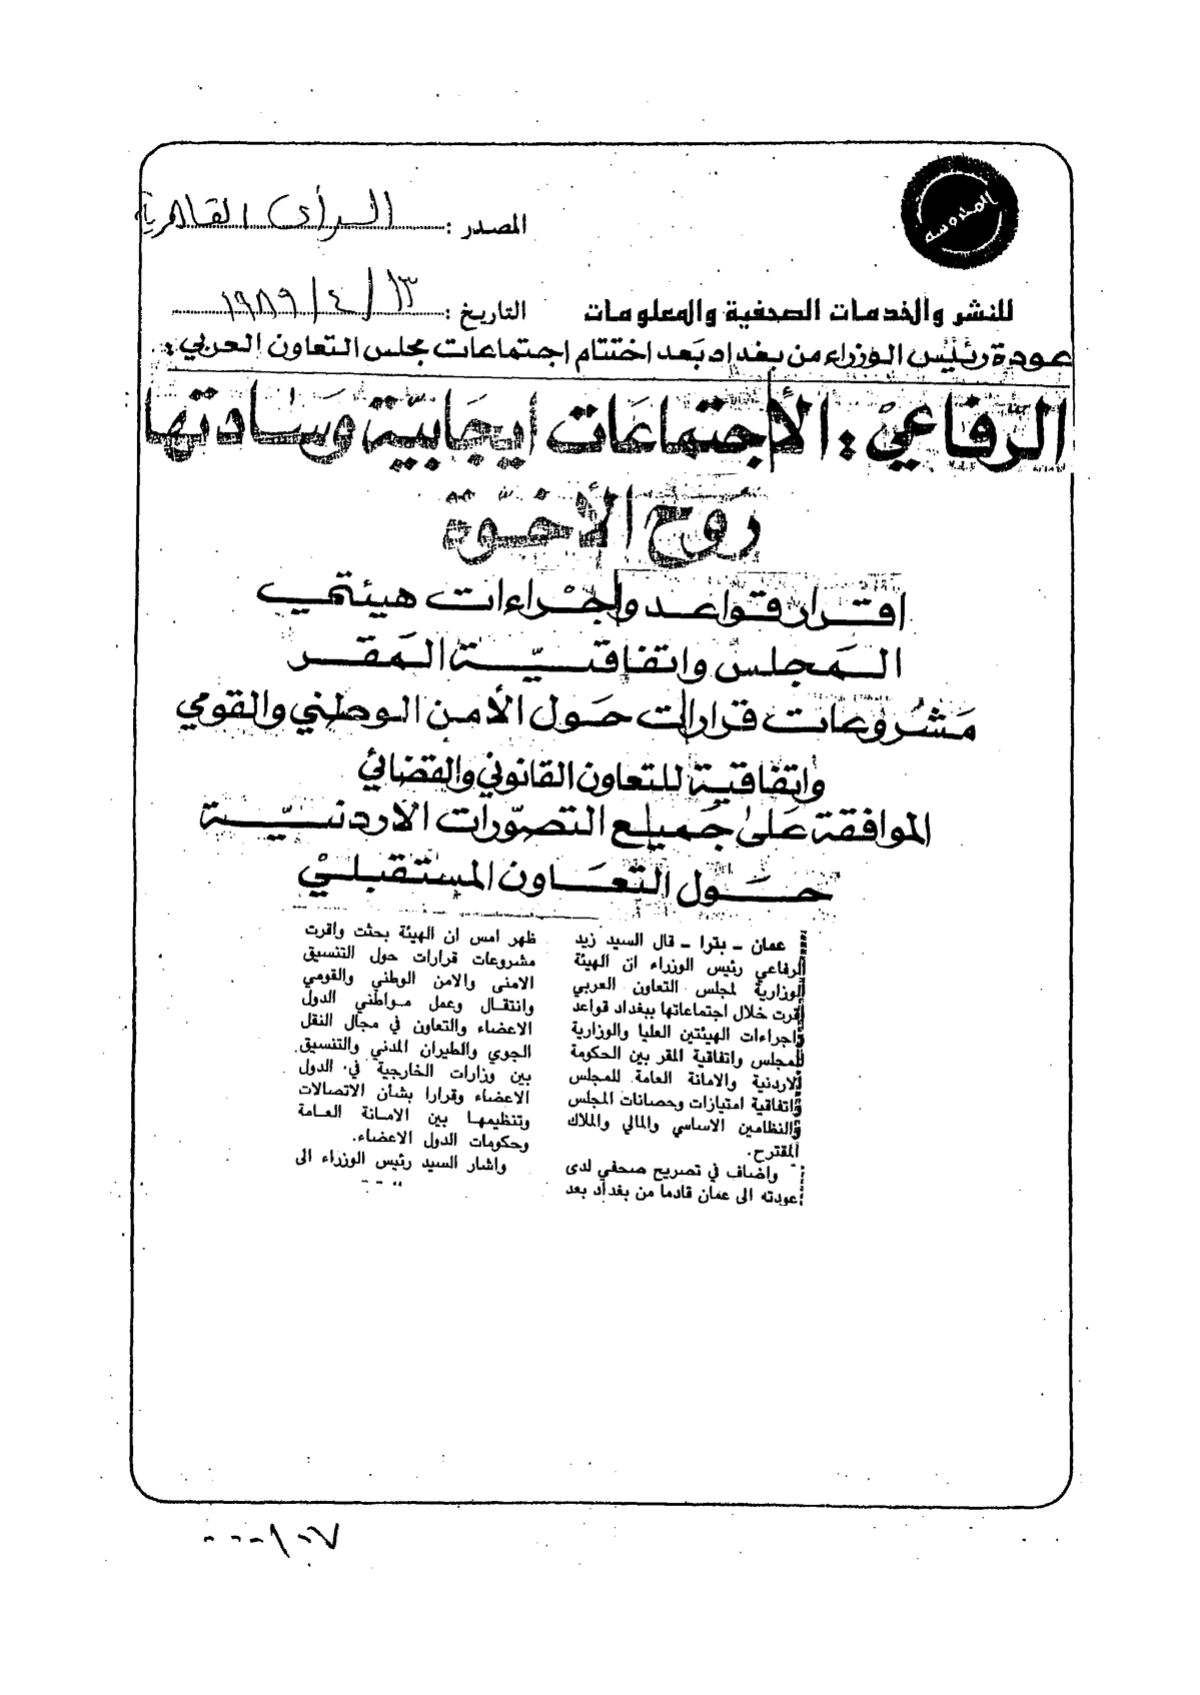 المصدر : الرأى القاهرية
للنشر والخدمات الصحفية والمعلومات
التاريخ : ١٣ / ٤ / ١٩٨٩
عودة رئيس الوزراء من بغداد بعد اختتام اجتماعات مجلس التعاون العربي :
الرفاعي : الأجتماعات ايجابية وسادتها
روح الأخوة
اقرار قواعد واجراءات هيئتي
المجلس واتفاقية المقر
مشروعات قرارات حول الأمن الوطني والقومي
واتفاقية للتعاون القانوني والقضائي
الموافقة على جميع التصورات الاردنية
حول التعاون المستقبلي
عمان – بترا – قال السيد زيد
الرفاعي رئيس الوزراء ان الهيئة
الوزارية لمجلس التعاون العربي
اقرت خلال اجتماعاتها ببغداد قواعد
واجراءات الهيئتين العليا والوزارية
للمجلس واتفاقية المقر بين الحكومة
الاردنية والامانة العامة للمجلس
واتفاقية امتيازات وحصانات المجلس
والنظامين الاساسي والمالي والملاك
المقترح.
واضاف في تصريح صحفي لدى
عودته الى عمان قادما من بغداد بعد
ظهر امس ان الهيئة بحثت واقرت
مشروعات قرارات حول التنسيق
الامنى والامن الوطني والقومي
وانتقال وعمل مواطني الدول
الاعضاء والتعاون في مجال النقل
الجوي والطيران المدني والتنسيق
بين وزارات الخارجية في الدول
الاعضاء وقرارا بشأن الاتصالات
وتنظيمها بين الامانة العامة
وحكومات الدول الاعضاء.
واشار السيد رئيس الوزراء الى